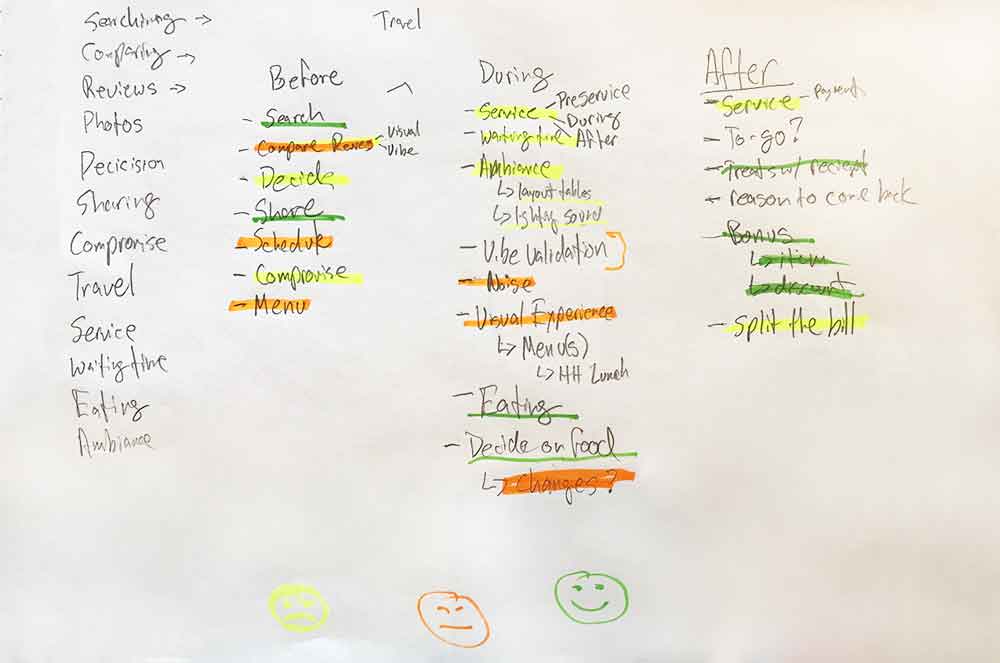 Searching →
Comparing →
Reviews →
Photos
Decicision
Sharing
Compromise
Travel
Service
waiting time
Eating
Ambiance
Travel
Before
- Search
- Compare Revews
Visual
Vibe
- Decide
- Share
- Schedule
- Compromise
- Menu
During
- Service
Preservice
During
After
- waiting time
- Ambiance
↳ layout tables
↳ lighting sound
- Vibe validation
- Noise
- Visual Experience
↳ Menu(s)
↳ HH Lunch
- Eating
- Decide on food
↳ Changes?
After
- Service - payment
- To-go?
- Treats w/ reciept
- reason to come back
- Bonus
↳ item
↳ discount
- split the bill